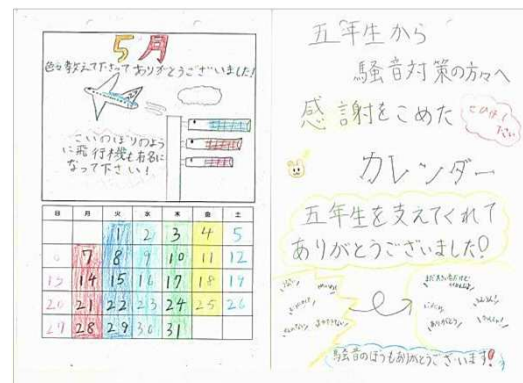 5月
色々教えて下さってありがとうございました!
こいのぼりのよう
に飛行機も有名に
なって下さい!
日 月 火 水 木 金 土
1 2 3 4 5
6 7 8 9 10 11 12
13 14 15 16 17 18 19
20 21 22 23 24 25 26
27 28 29 30 31
五年生から
騒音対策の方々へ
感謝をこめた
カレンダー
五年生を支えてくれて
ありがとうございました!
ありがとう!
騒音のほうもありがとうございます!